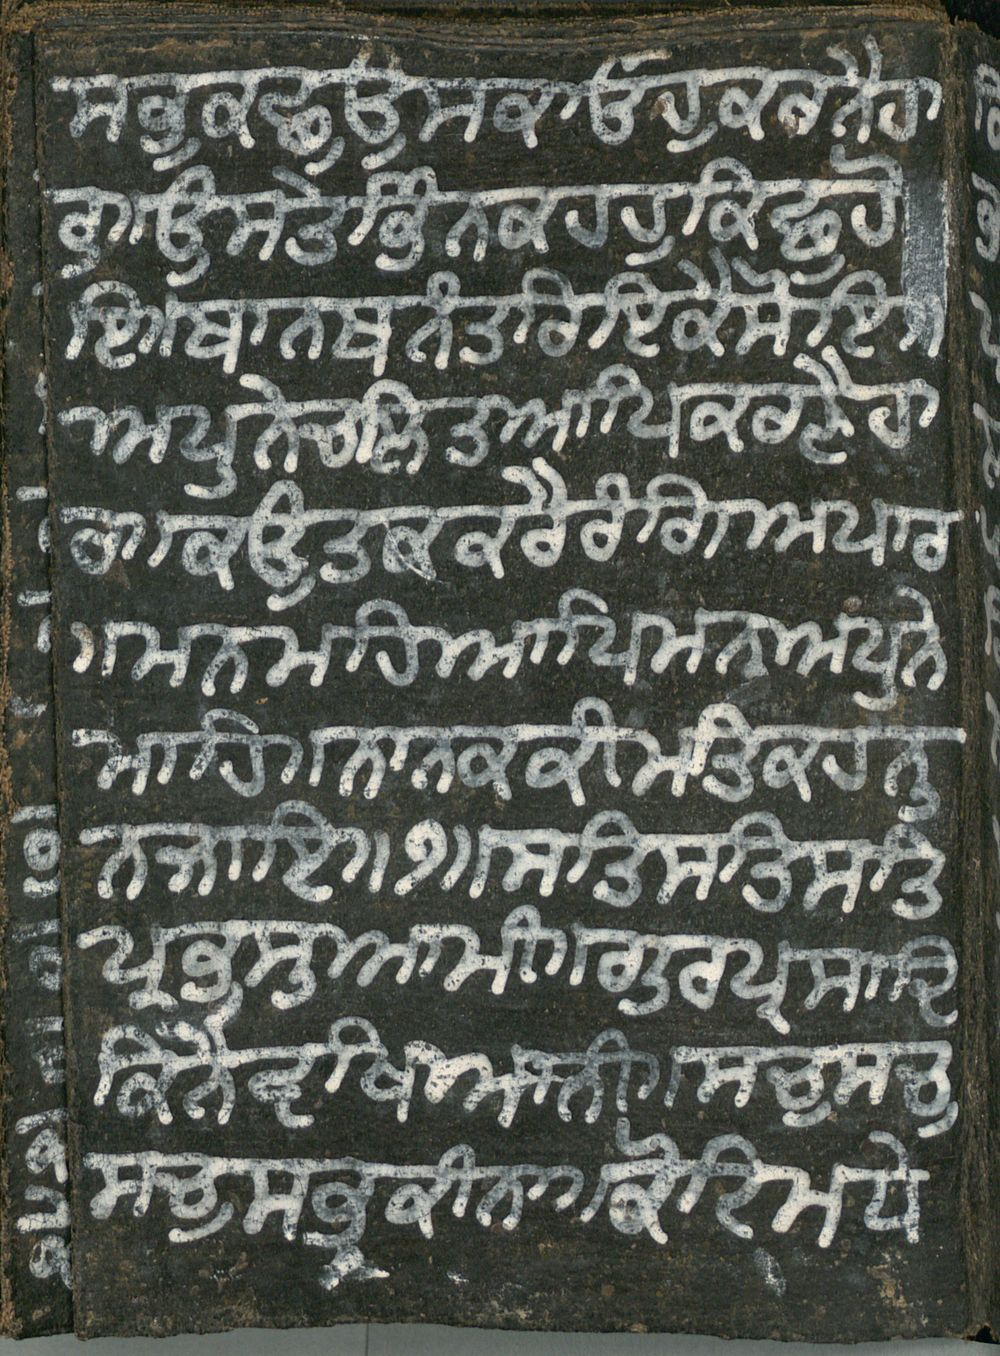 ਸਭੁਕਛੁਉਸਕਾਓਹੁਕਰਨੈਹਾ
ਰੁ।ਉਸਤੇਭਿੰਨਕਹਹੁਕਿਛੁਹੋ
ਇ।ਥਾਨਥਨੰਤਰਿਇਕੈਸੋਇ।
ਅਪੁਨੇਚਲਿਤਆਪਿਕਰਣੈਹਾ
ਰਾ।ਕਉਤਕਕਰੈਰੰਗਿ।ਅਪਾਰ
।ਮਨਮਹਿਆਪਿਮਨਅਪੁਨੇ
ਮਾਹਿ।ਨਾਨਕਕੀਮਤਿਕਹਨੁ
ਨਜਾਇ॥੭॥ਸਤਿਸਤਿਸਤਿ
ਪ੍ਰਭੁਸੁਆਮੀ।ਗੁਰਪ੍ਰਸਾਦਿ
ਕਿਨੈਵਖਿਆਨੀ।ਸਚੁਸਚੁ
ਸਚੁਸਭੁਕੀਨਾ।ਕੋਟਿਮਧੇ